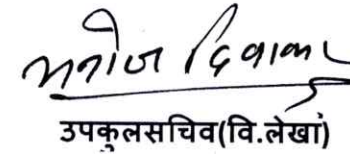 मनोज दिवाकर
उपकुलसचिव(वि.लेखा)